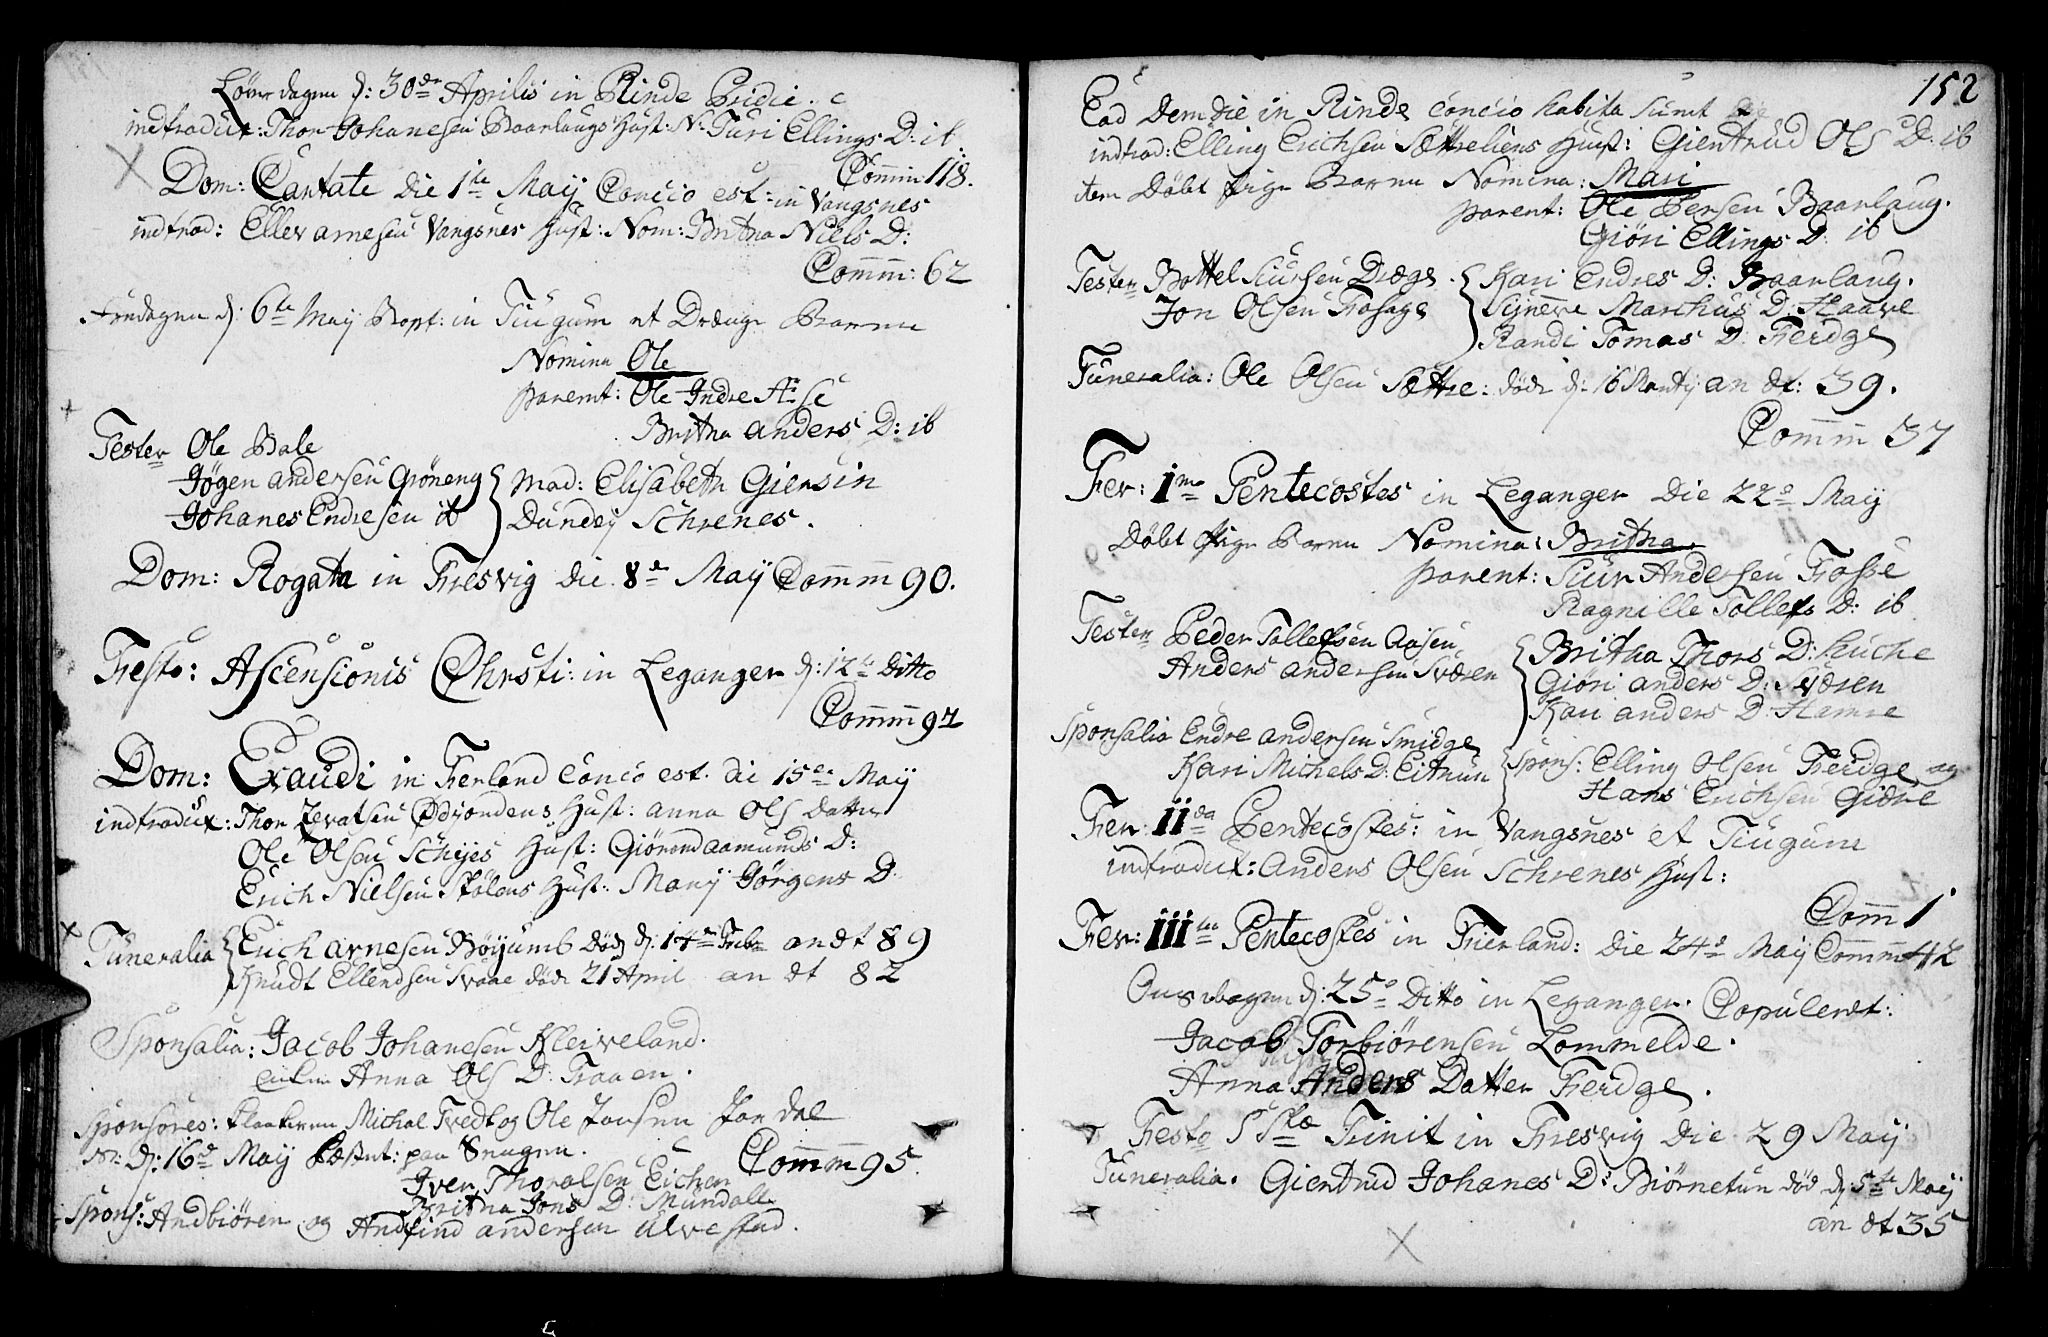 Løverdagen d: 30de Aprilis in Rinde Pridie
indtroduct: Thor Johanesen Baarlaugs Hust: N: Turi Ellings D: ib.
Comm 118.
Dom: Cantate die 1te Maij Concio est: in Vangsnes
indtrod: Ellev arnesen Vangsnes Hust: Nom: Britha Niels D:
Comm: 62
Fredagen d: 6te Maij Bapt: in Tiugum et Drænge Barn
Nomina Ole
parent: Ole Indre Aase
Britha anders D: ib
Tester Ole Bale
Jøgen andersen Grøneng
Johanes Endresen ib
Mad: Elisabeth Giensin
Dundej Schrenes.
Dom: Rogata in Fresvig die 8de Maij Comm 90.
Festo: Ascensionis Christi: in Leganger d: 12te Ditto
Comm 92
Dom: Exaudi in Fierland concio est. die 15de Maij
indtroduct: Thor Zevatsen Ødyordens Hust: anna Ols Datter
Ole Olsen Schejes Hust: Giørond aamunds D:
Erich Nielsen Stølens Hust: Marij Jørgens D.
Funeralia Erich arnesen Bøyumb Død d: 14de Febr an æt 89
Knudt Ellendsen Svaae døde 21 April an æt 82
Sponsalia: Jacob Johanesen Kleiveland.
Anna Ols D. Traaen.
Sponsores: Klockeren Michal Tvedt og Ole Jonsen Skardal
d: 16de Maij Fæstet: paa Snugen.
Comm 95.
Iver Thoralsen Eichen
Britha Jons D: Mundall
Spons: Andbiøren og Andfind andersen Ulvestad.
152
Eod Dem die in Rinde concio habita sunt
indtrod: Elling Erichsen Sættreliens Hust: Giertrud Ols D: ib
item Døbt Pige Barn Nomina: Mari
parent: Ole Persen Baarlaug.
Giøri Ellings D: ib
Tester Bottel Siursen Dregs.
Jon Olsen Fosage
Kari Endres D: Baarlaug.
Signeve Marchus D: Haave
Randi Tomas D: Feidge
Funeralia: Ole Olsen Sættre: døde d: 16 Martij an æt: 39.
Comm 37
Fer: Ime Pentecostes in Leganger die 22de Maij
Døbt Pige Barn Nomina: Britha.
parent: Siur Andersen Fosse
Ragnille Tollefs D: ib
Tester Peder Tollefsen Aasen
Anders andersen Sværen
Britha Thors D: Kuche
Giøri anders D: Sværen
Kari anders D: Hamre
Sponsalia Endre andersen Smidge
Kari Michels D: Eitrun
Spons: Elling Olsen Feidge og
Hans Erichsen Giære
Fer: IIda Pentecostes: in Vangsnes et Tiugum
indtroduct: Anders Olsen Schrenes Hust:
Comm 1
Fer: IIItia Pentecostes in Fierland: die 24de Maij Comm 42
Onsdagen d: 25de Ditto in Leganger. Copuleret:
Jacob Torbiørensen Lommelde.
Anna Anders Datter Feidge.
Festo SStæ Trinit in Fresvig die 29 Maij
Funeralia. Giertrud Johanes D: Biørnetun død d: 5te Maij
an æt 35